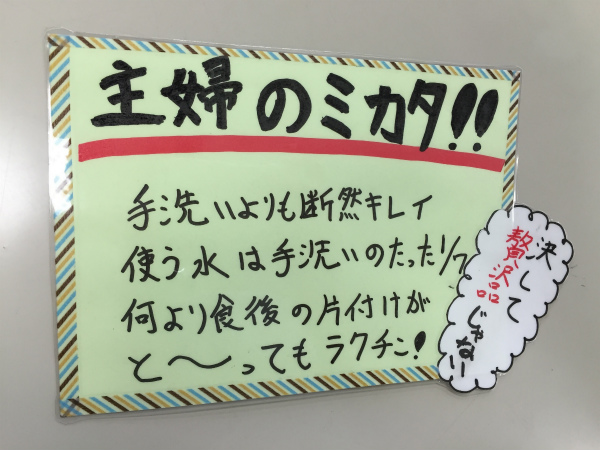 主婦のミカタ!!
手洗いよりも断然キレイ
使う水は手洗いのたった1/7
何より食後の片付けが
と〜ってもラクチン!
決して
贅沢品
じゃない